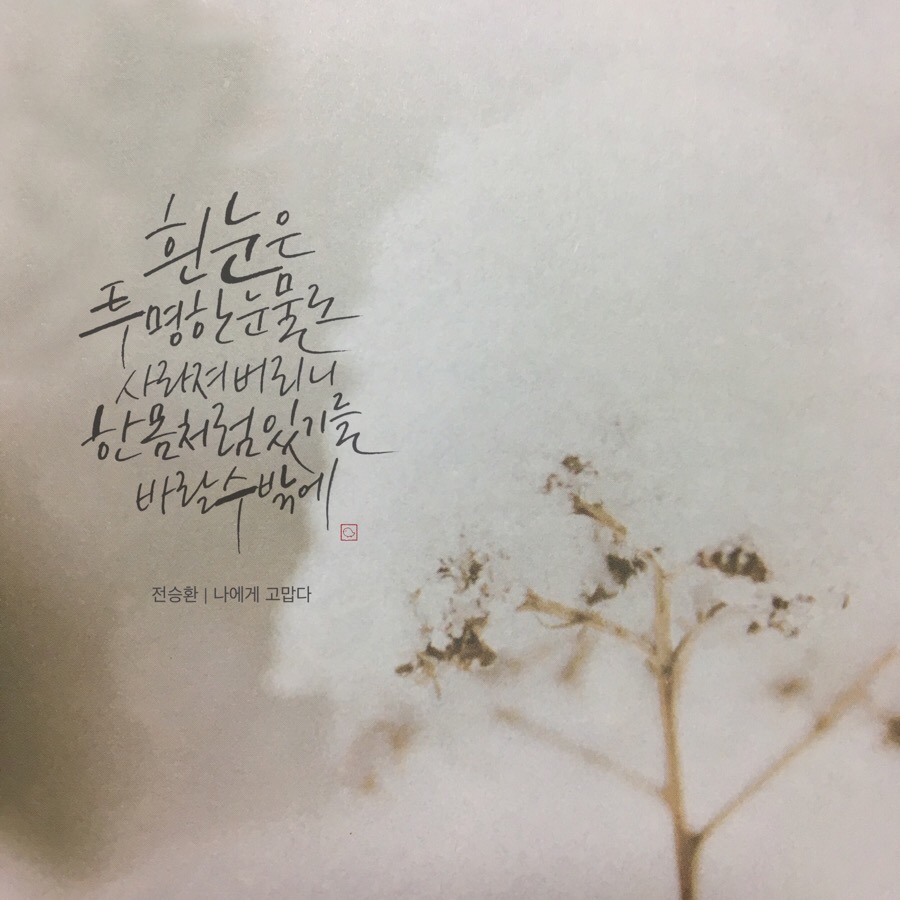 흰 눈은
투명한 눈물로
사라져 버리니
한 몸처럼 있기를
바랄 수밖에
전승환 | 나에게 고맙다